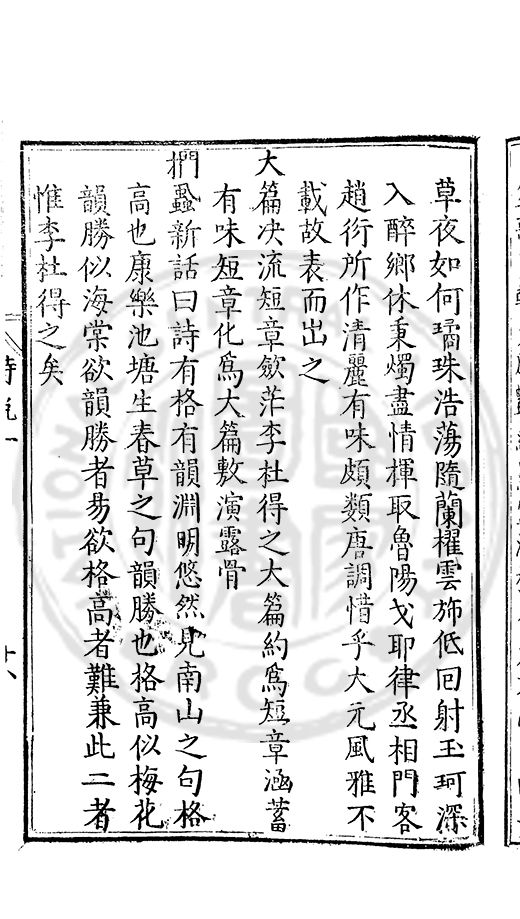 草夜如何璚珠浩蕩隨蘭櫂雲斾低回射玉珂深
入醉鄉休秉燭盡情揮取魯陽戈耶律丞相門客
趙衍所作清麗有味頗類唐調惜乎大元風雅不
載故表而出之
大篇决流短章歛茫李杜得之大篇約爲短章涵蓄
有味短章化爲大篇敷演露骨
捫蝨新話曰詩有格有韻淵明悠然見南山之句格
高也康樂池塘生春草之句韻勝也格高似梅花
韻勝似海棠欲韻勝者易欲格高者難兼此二者
惟李杜得之矣